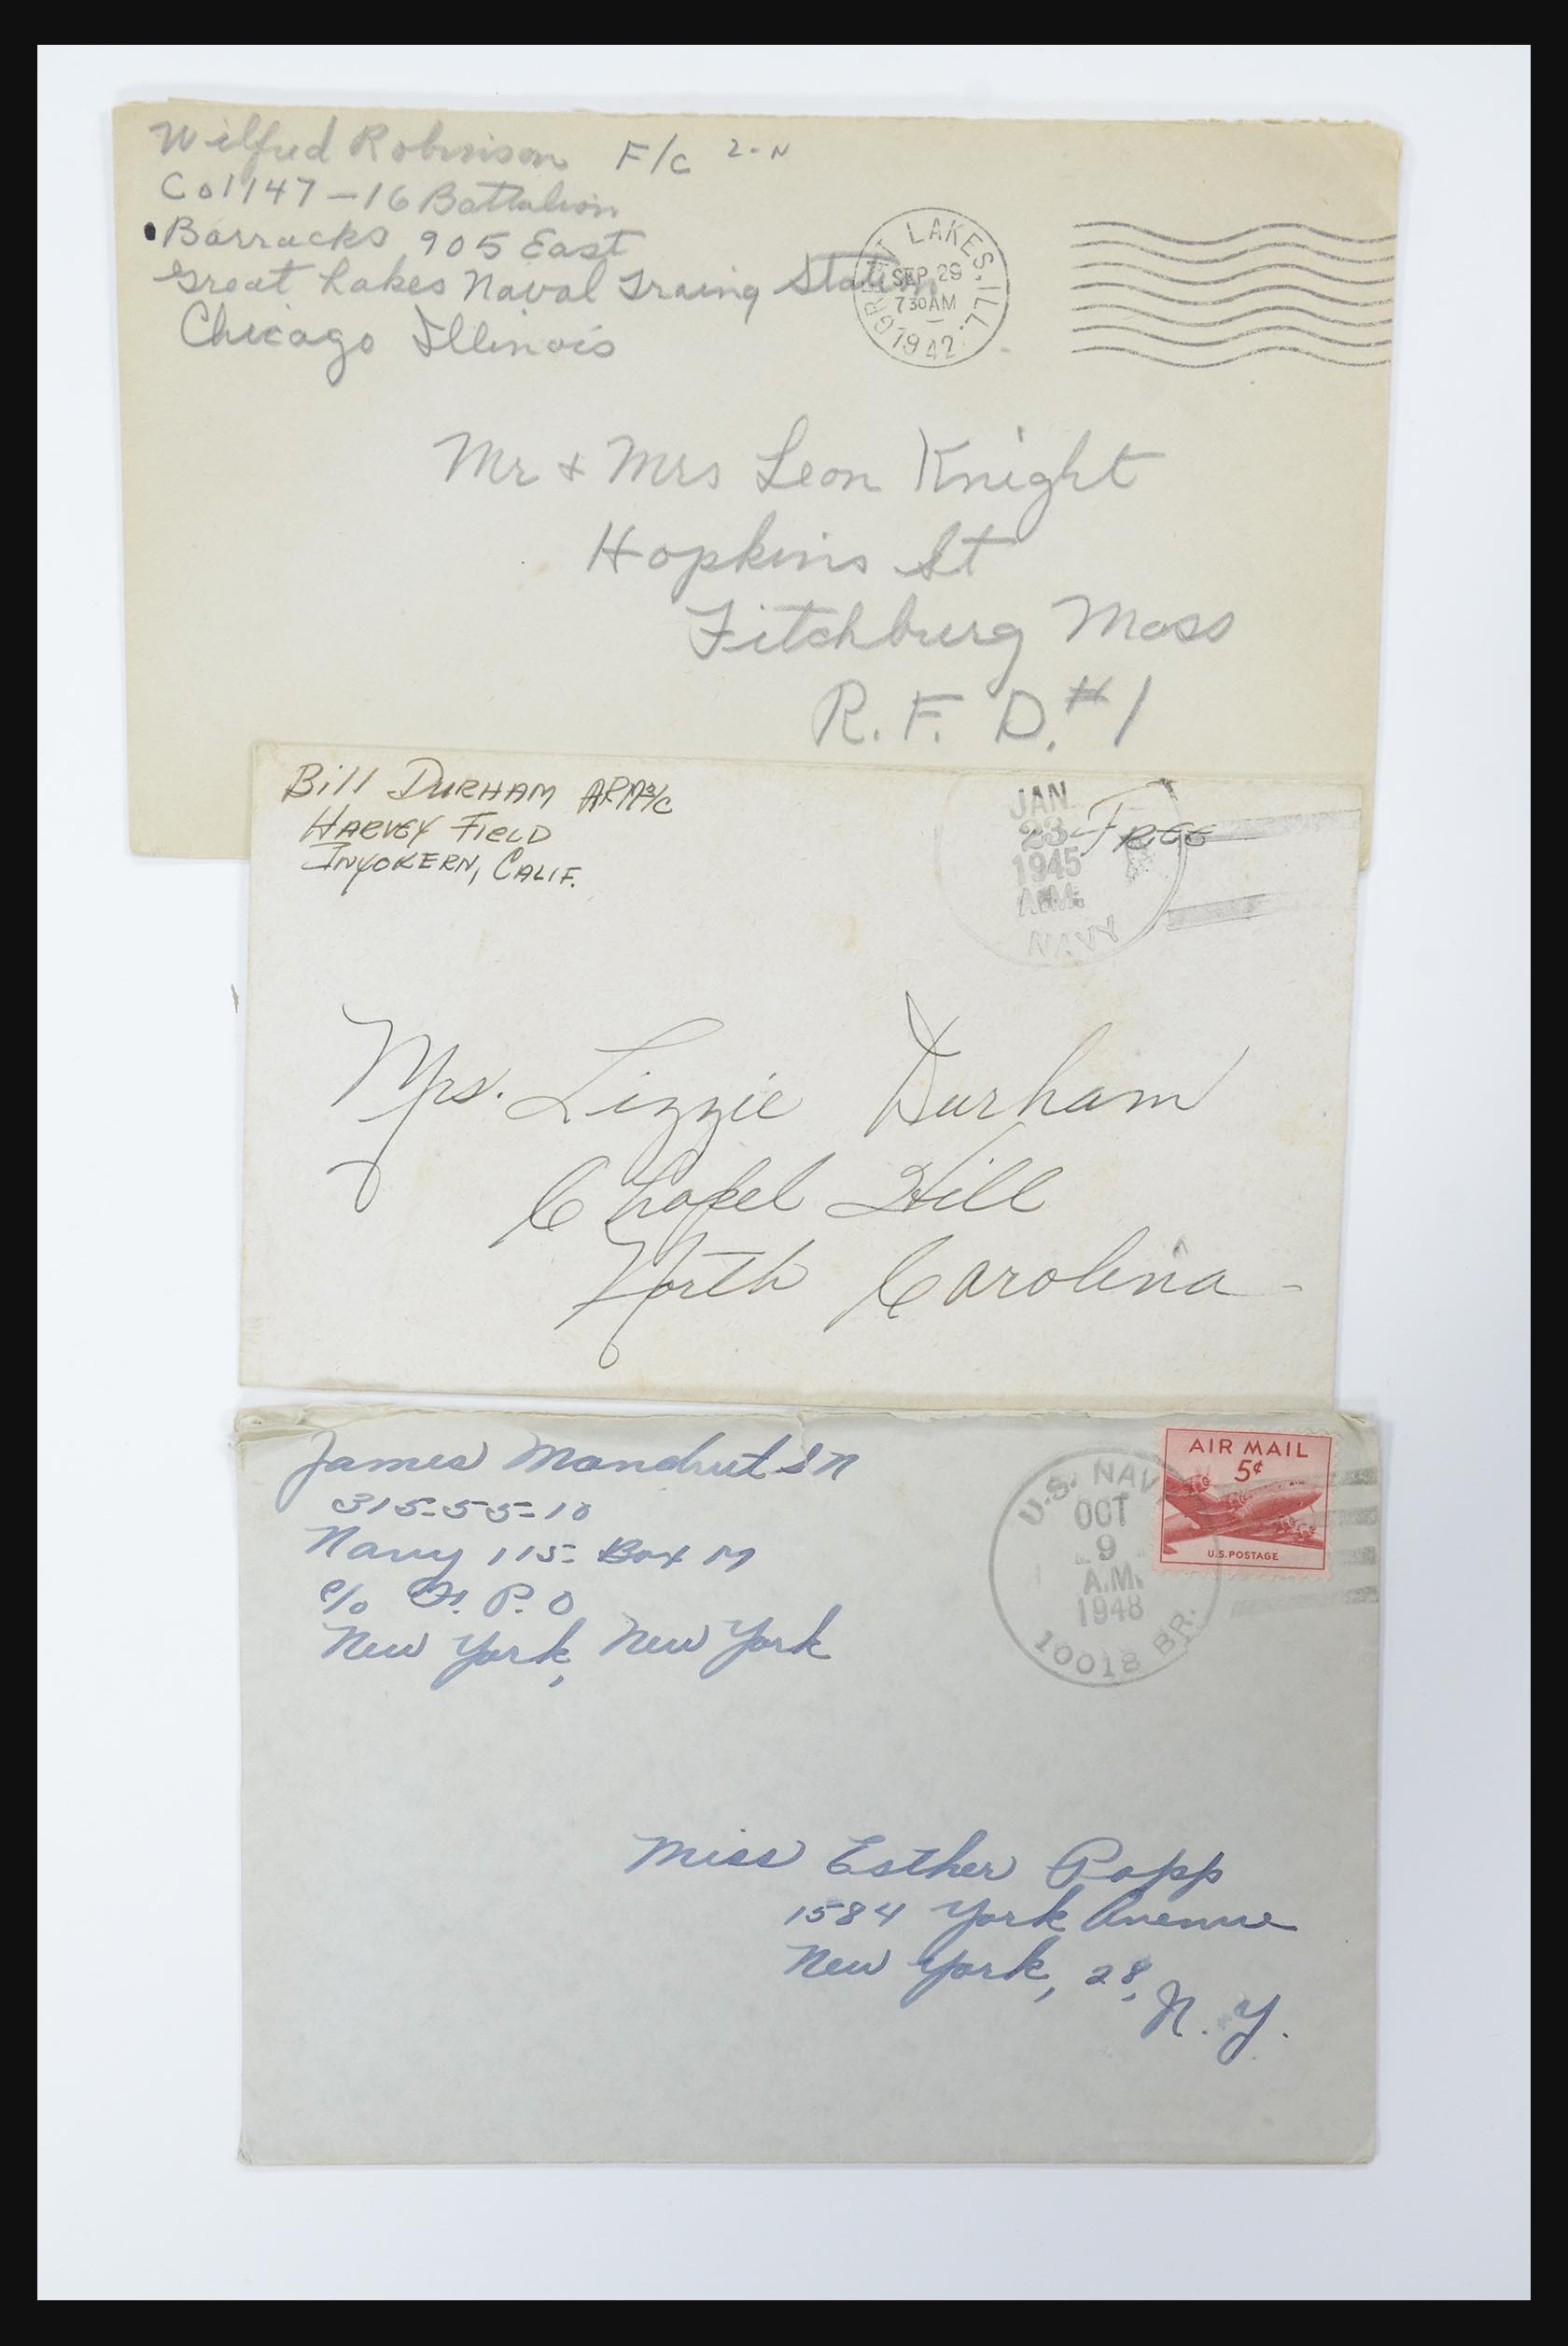 Wilfred Robinson F/C 2-N
Co 1147 - 16 Battalion
Barracks 905 East
Great Lakes Naval Traing Station
Chicago Illinois
GREAT LAKES, ILL.
SEP 29
7 30 AM
1942
Mr & Mrs Leon Knight
Hopkins St
Fitchburg Mass
R. F. D. #1
Bill DURHAM ARM3/C
HARVEY FIELD
INYOKERN, CALIF.
Free
JAN
23
1945
A.M.
NAVY
Mrs. Lizzie Durham
Chapel Hill
North Carolina
James Mandrut SN
315-55-10
Navy 115 Box M
c/o F. P. O
New York, New York
AIR MAIL
5¢
U.S. POSTAGE
U.S. NAVY
OCT
9
A.M.
1948
10018 BR.
Miss Esther Popp
1584 York Avenue
New York, 28,
N. Y.